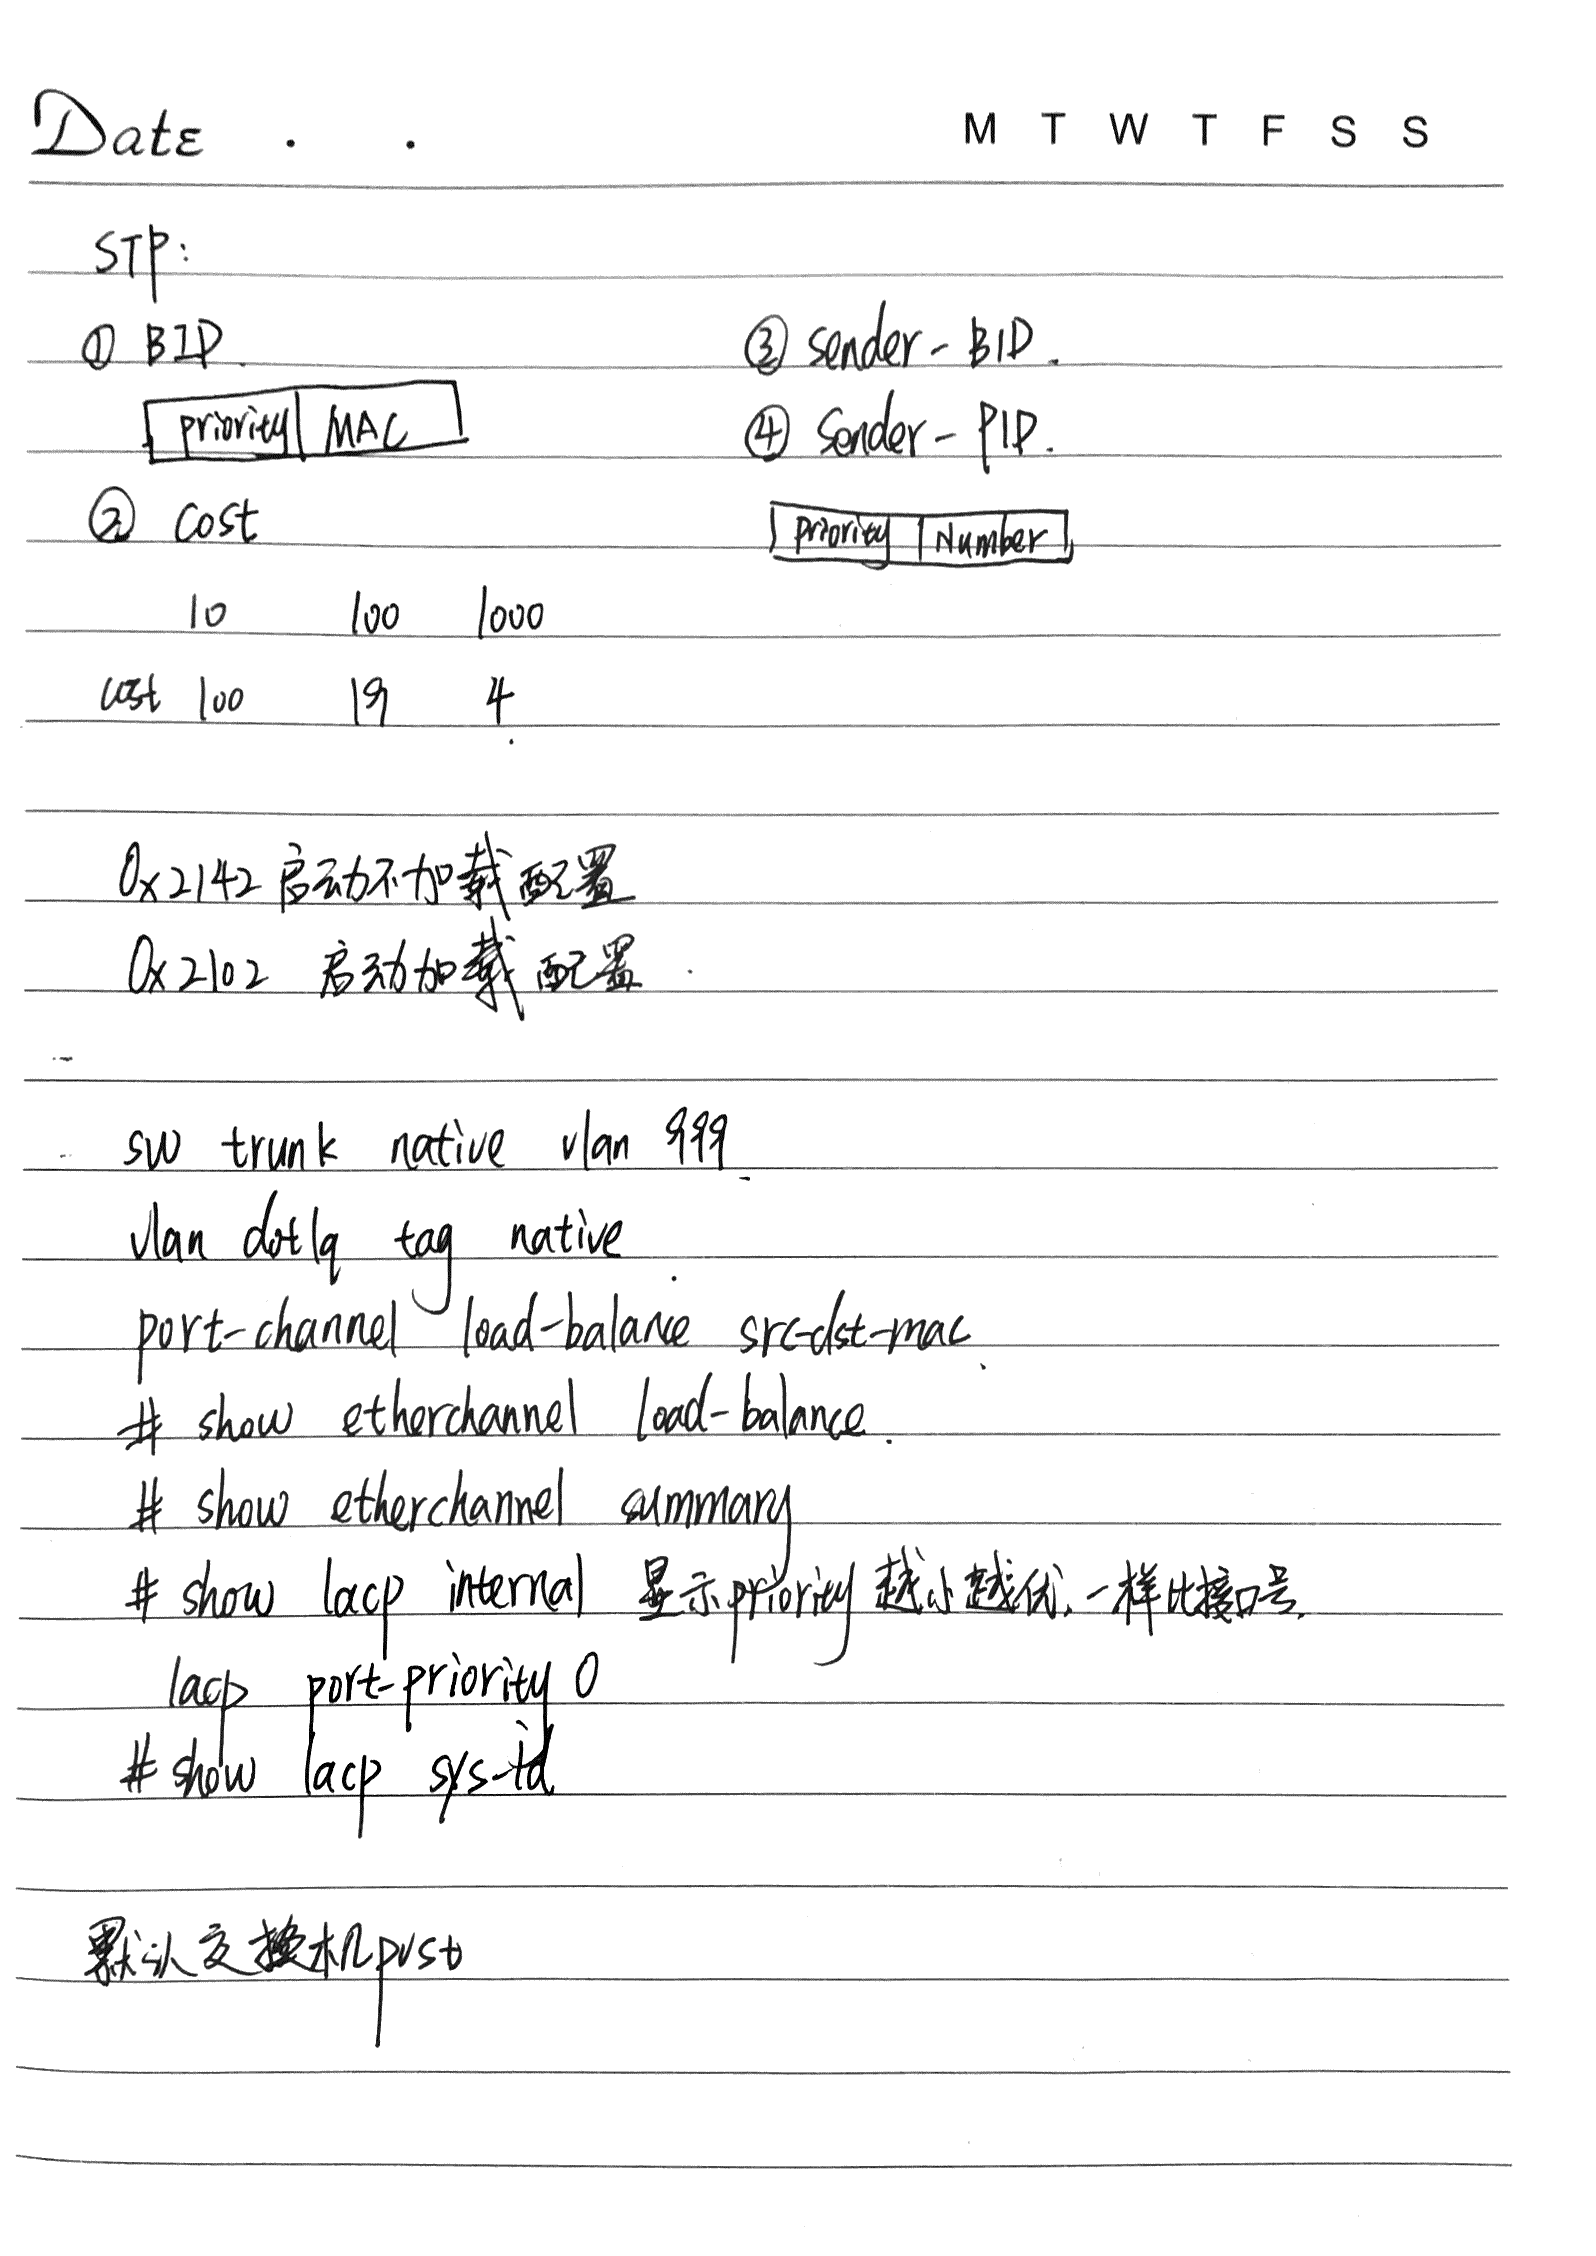 Date . .
M T W T F S S
STP:
① BID.
priority | MAC
② cost
10 100 1000
cost 100 19 4
③ sender-BID.
④ sender-PID.
priority | Number
0x2142 启动不加载配置
0x2102 启动加载配置.
sw trunk native vlan 999
vlan dot1q tag native
port-channel load-balance src-dst-mac.
# show etherchannel load-balance.
# show etherchannel summary
# show lacp internal 显示priority越小越优、一样比接口号.
lacp port-priority 0
# show lacp sys-id
默认交换机pvst